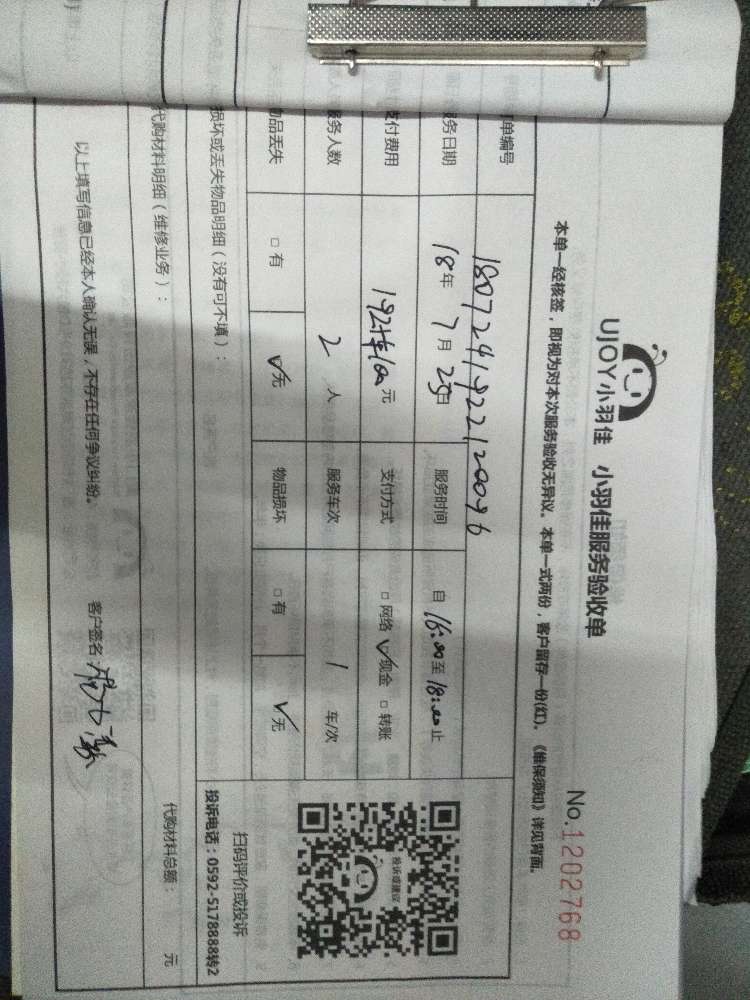 UJOY小羽佳 小羽佳服务验收单
No.1202768
本单一经核签，即视为对本次服务验收无异议。本单一式两份，客户留存一份(红)。《维保须知》详见背面。
单编号 1807241922120096
服务日期 18年 7月 25日 服务时间 自 16:00至 18:00止
支付费用 元 支付方式 □ 网络 ☑现金 □ 转账
服务人数 2 人 服务车次 1 车/次
物品丢失 □ 有 ☑无 物品损坏 □ 有 ☑无
投诉或建议
扫码评价或投诉
投诉电话：0592-5178888转2
损坏或丢失物品明细（没有可不填）：
代购材料明细（维修业务）： 代购材料总额： 元
以上填写信息已经本人确认无误，不存在任何争议纠纷。 客户签名